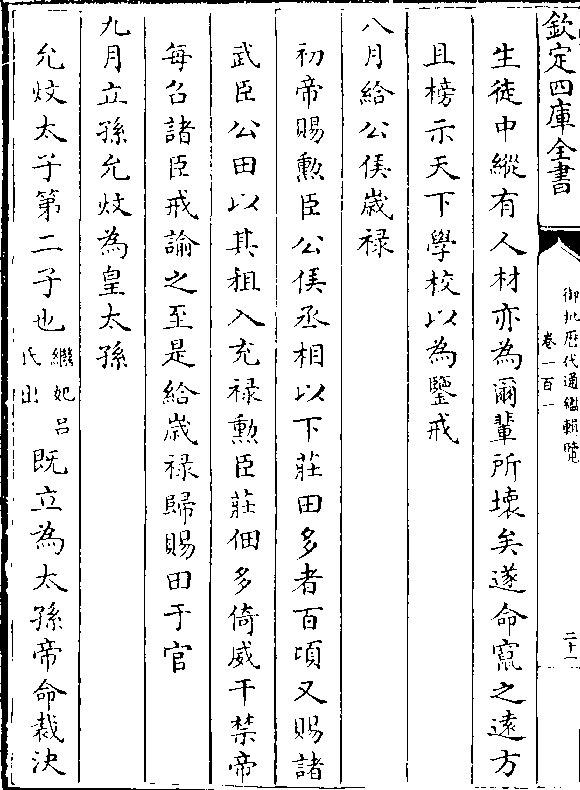 欽定四庫全書
御批歷代通鑑輯覽
卷一百一
二十一
生徒中縱有人材亦為爾輩所壞矣遂命竄之遠方
且榜示天下學校以為鑒戒
八月給公侯歲祿
初帝賜勲臣公侯丞相以下莊田多者百頃又賜諸
武臣公田以其租入充祿勲臣莊佃多倚威干禁帝
每召諸臣戒諭之至是給歲祿歸賜田于官
九月立孫允炆為皇太孫
允炆太子第二子也繼妃呂氏出既立為太孫帝命裁決